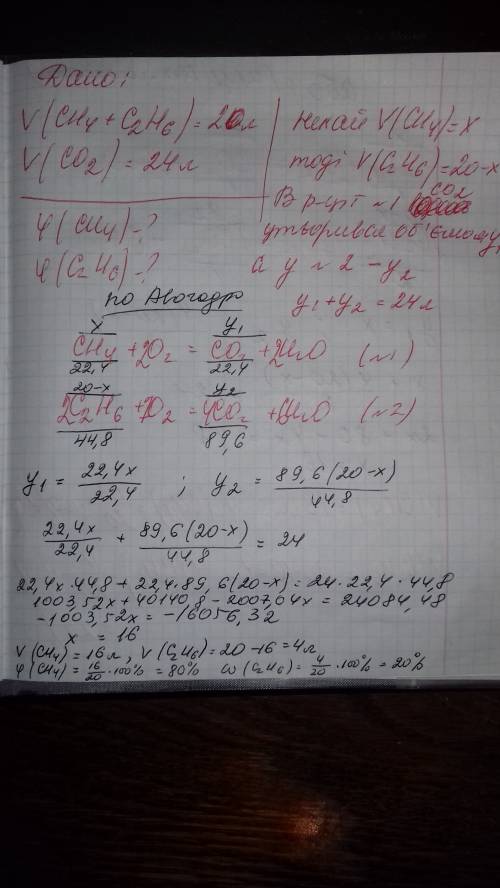 Дано:
V(CH4 + C2H6) = 20л
V(CO2) = 24л
φ(CH4) - ?
φ(C2H6) - ?
Нехай V(CH4) = x
тоді V(C2H6) = 20-x
В р-ції ~1 CO2
утворився об'ємом y1
а у ~2 - y2
y1 + y2 = 24л
по Авогадро
x y1
CH4 + 2O2 = CO2 + 2H2O (~1)
22,4 22,4
20-x y2
2C2H6 + 7O2 = 4CO2 + 6H2O (~2)
44,8 89,6
y1 = 22,4x / 22,4 ; y2 = 89,6(20-x) / 44,8
22,4x / 22,4 + 89,6(20-x) / 44,8 = 24
22,4x · 44,8 + 22,4 · 89,6(20-x) = 24 · 22,4 · 44,8
1003,52x + 40140,8 - 2007,04x = 24084,48
-1003,52x = -16056,32
x = 16
V(CH4) = 16л, V(C2H6) = 20-16 = 4л
φ(CH4) = 16/20 · 100% = 80% ω(C2H6) = 4/20 · 100% = 20%